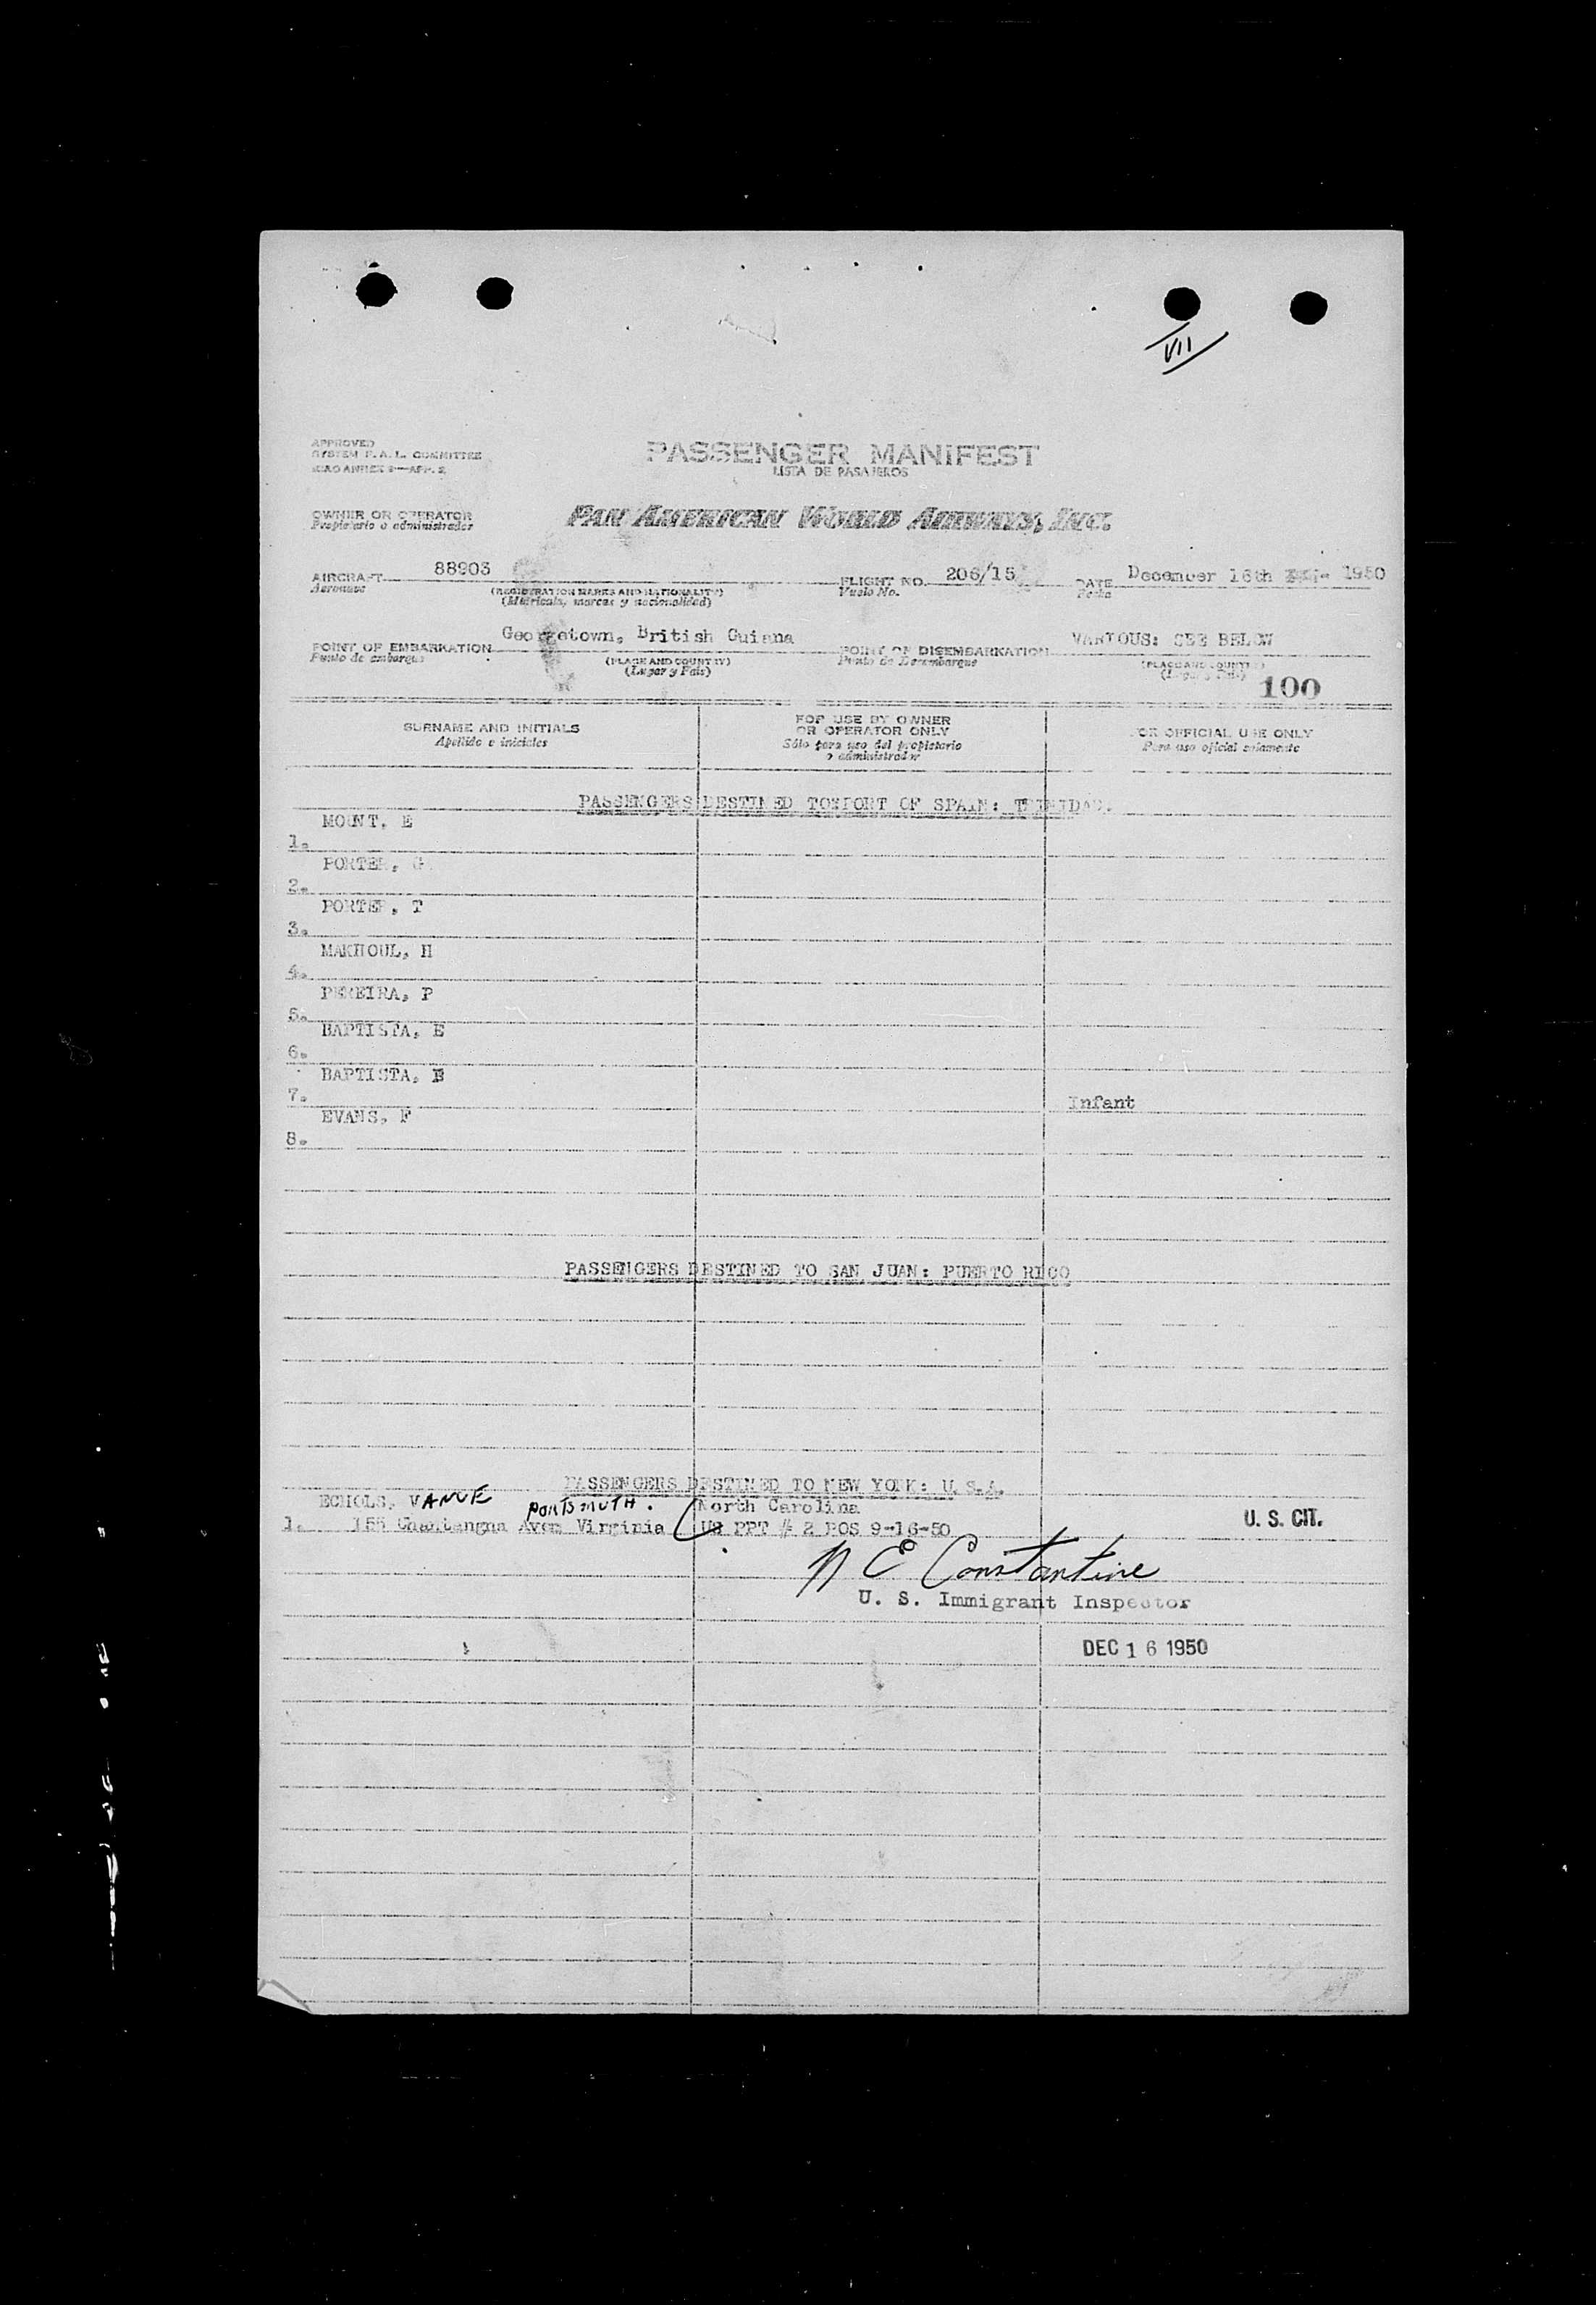 VII
APPROVED
SYSTEM F.A.L. COMMITTEE
ICAO ANNEX 9—APP. 2
PASSENGER MANIFEST
LISTA DE PASAJEROS
OWNER OR OPERATOR
Propietario o administrador
PAN AMERICAN WORLD AIRWAYS, INC.
AIRCRAFT 88903 FLIGHT NO. 206/15 DATE December 16th 1950
Aeronave (REGISTRATION MARKS AND NATIONALITY) Vuelo No. Fecha
(Matricula, marcas y nacionalidad)
POINT OF EMBARKATION Georgetown, British Guiana POINT OF DISEMBARKATION VARIOUS: SEE BELOW
Punto de embarque (PLACE AND COUNTRY) Punto de Desembarque (PLACE AND COUNTRY)
(Lugar y País) (Lugar y País) 100
SURNAME AND INITIALS FOR USE BY OWNER OR OPERATOR ONLY FOR OFFICIAL USE ONLY
Apellido e iniciales Sólo para uso del propietario o administrador Para uso oficial solamente
PASSENGERS DESTINED TO PORT OF SPAIN: TRINIDAD.
MOUNT, E
1.
PORTER, G
2.
PORTER, T
3.
MAKHOUL, H
4.
PEREIRA, P
5.
BAPTISTA, E
6.
BAPTISTA, B
7. Infant
EVANS, F
8.
PASSENGERS DESTINED TO SAN JUAN: PUERTO RICO
PASSENGERS DESTINED TO NEW YORK: U.S.A.
ECHOLS, VANCE PORTSMOUTH. North Carolina
1. 155 Aven Virginia US PPT # 2 POS 9-16-50 U. S. CIT.
N E Constantine
U. S. Immigrant Inspector
DEC 16 1950